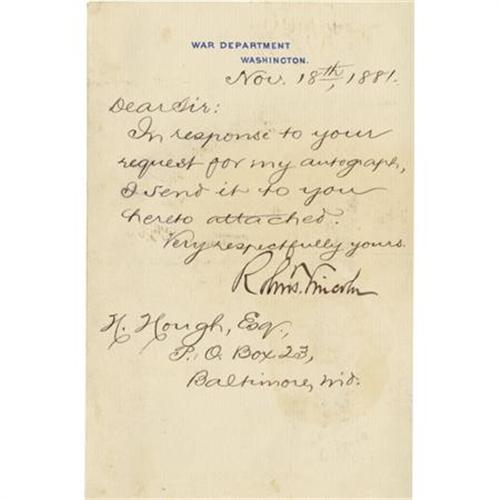 WAR DEPARTMENT
WASHINGTON.
Nov. 18th, 1881.
Dear Sir:
In response to your
request for my autograph,
I send it to you
hereto attached.
Very respectfully yours.
Robt. T. Lincoln
H. Hough, Esq.,
P. O. Box 23,
Baltimore, Md.